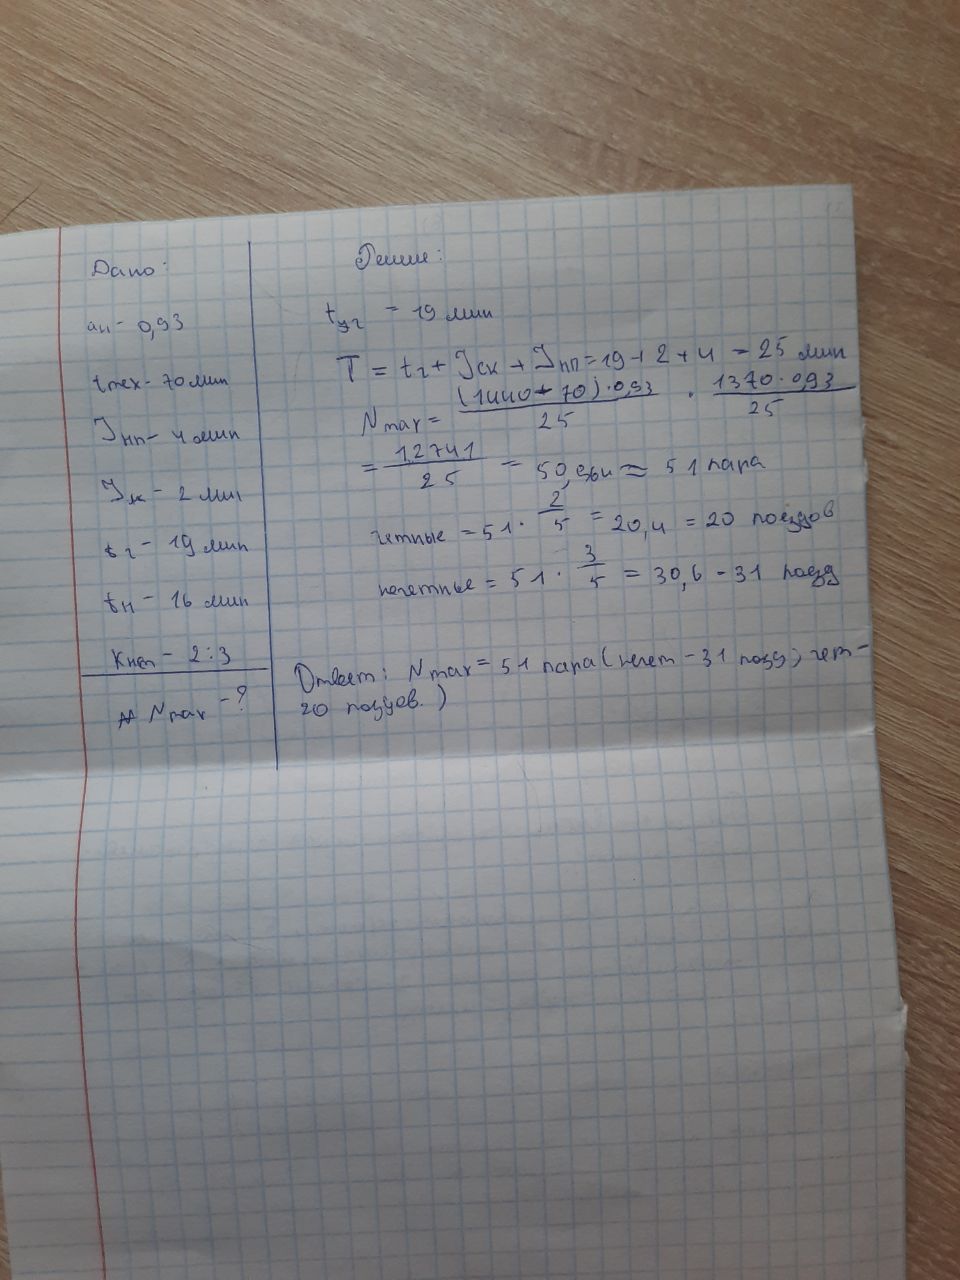 Дано:
αн - 0,93
tтех - 70 мин
Jнп - 4 мин
Jск - 2 мин
tг - 19 мин
tн - 16 мин
Кнеп - 2:3
Nmax - ?
Решие:
= 19 мин
T = tг + Jск + Jнп = 19 + 2 + 4 = 25 мин
Nmax = (1440 - 70) · 0,93 / 25 · 1370 · 0,93 / 25
= 1274,1 / 25 = 50,964 ≈ 51 пара
четные = 51 · 2/5 = 20,4 = 20 поездов
нечетные = 51 · 3/5 = 30,6 - 31 поезд
Ответ: Nmax = 51 пара (нечет - 31 поезд; чет -
20 поездов.)